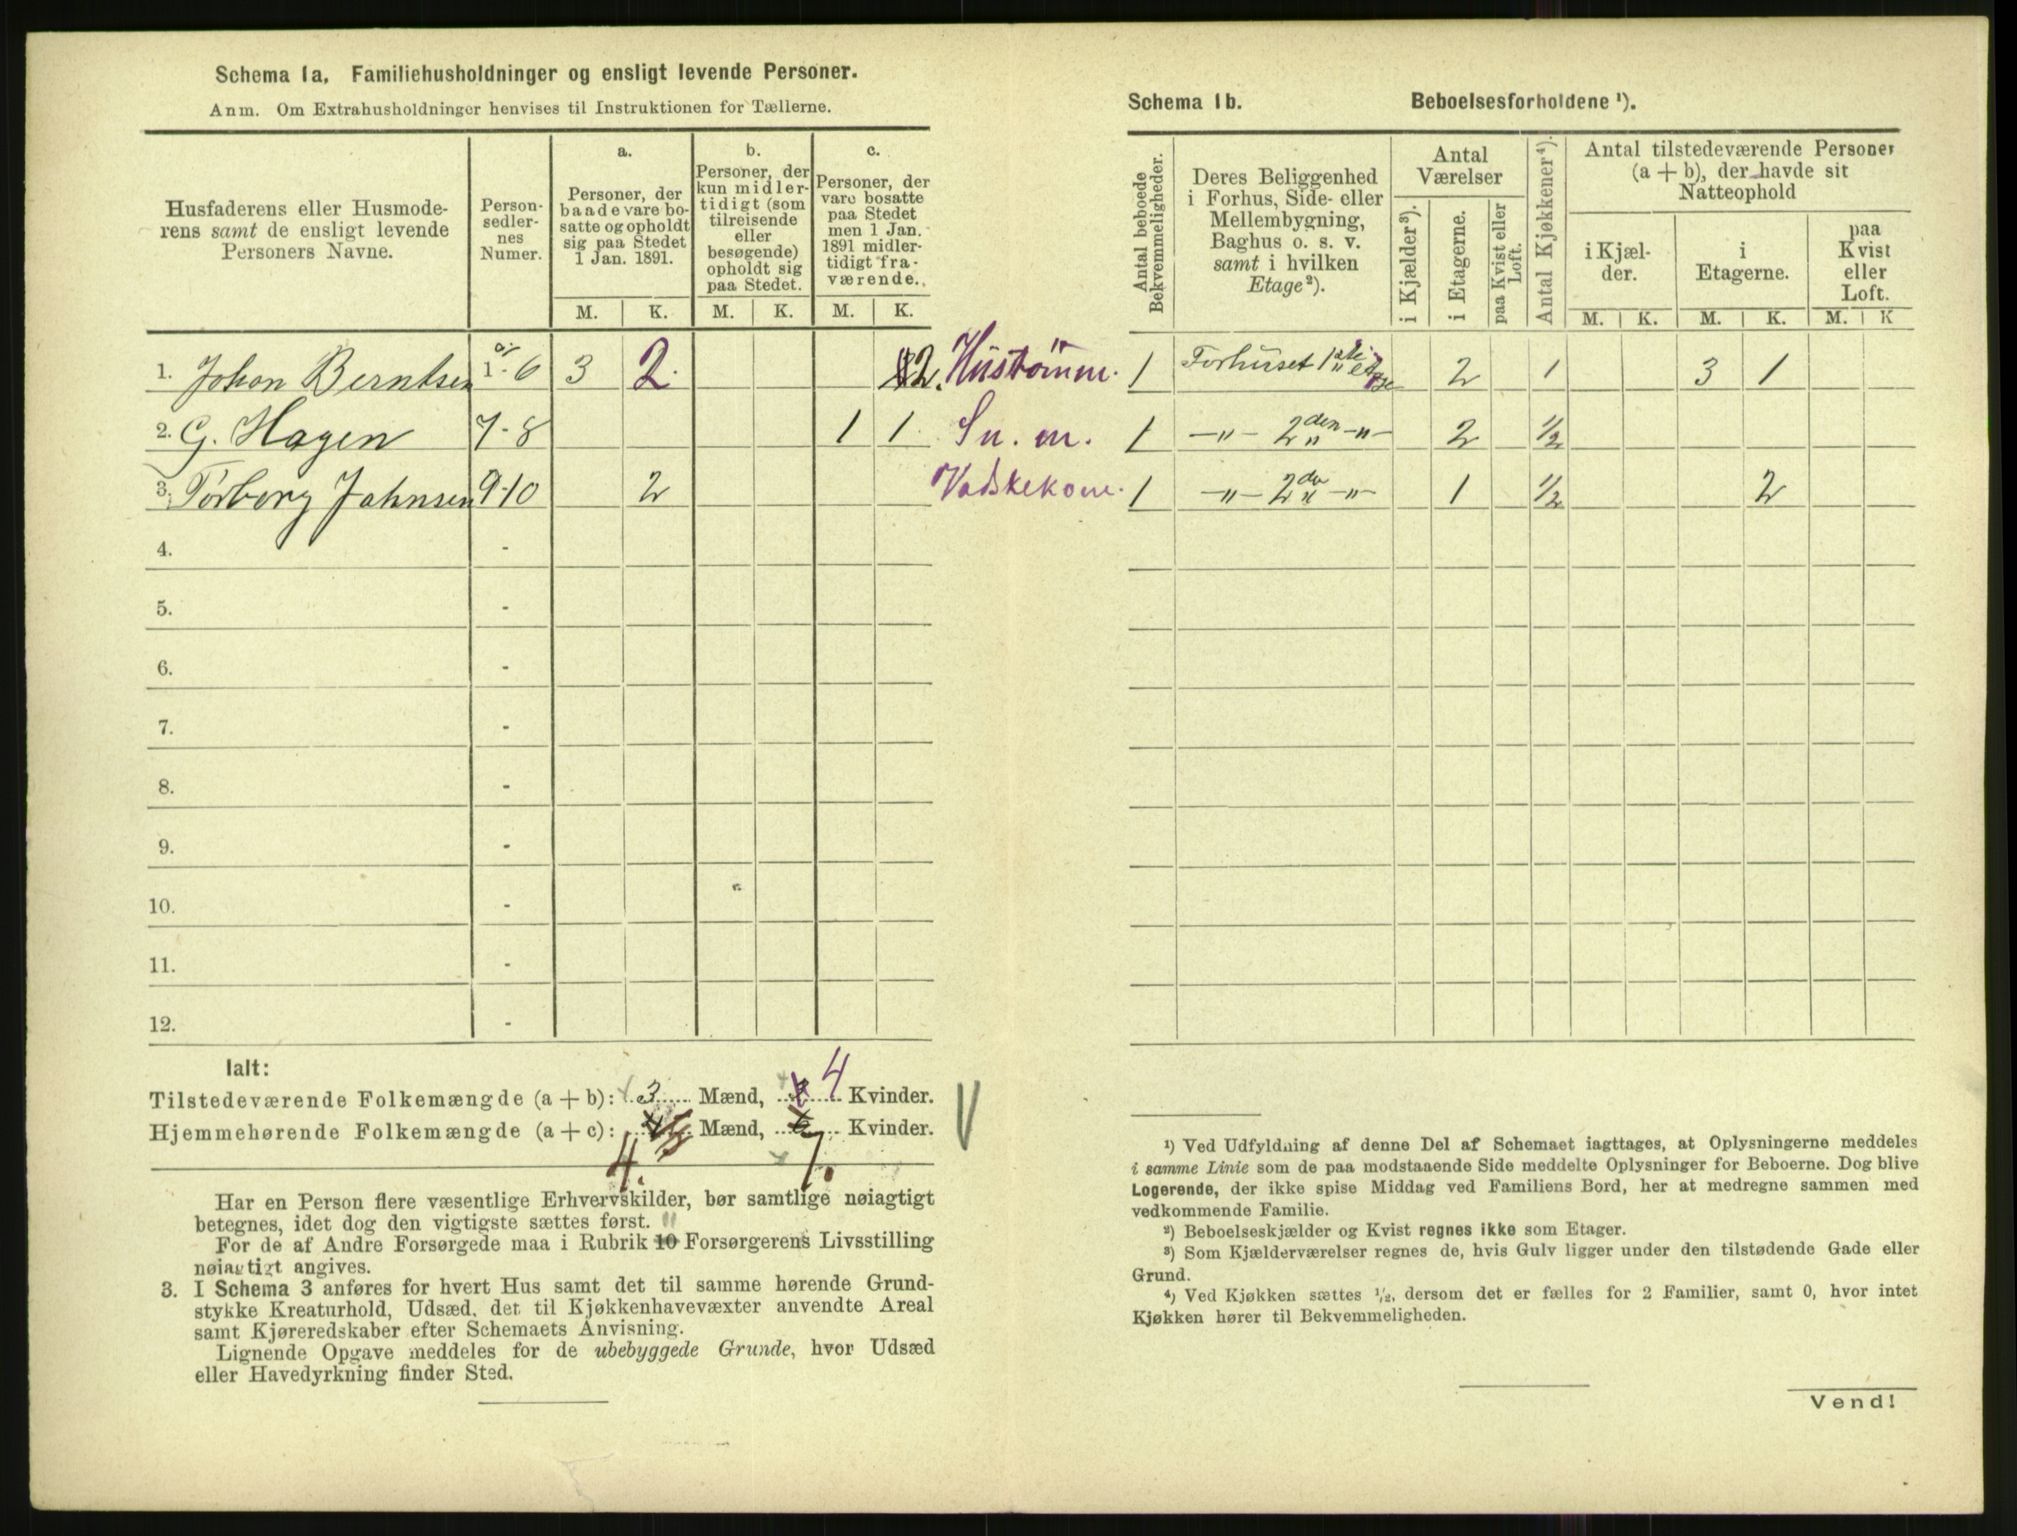 Schema 1a, Familiehusholdninger og ensligt levende Personer.
Anm. Om Extrahusholdninger henvises til Instruktionen for Tællerne.
Husfaderens eller Husmode-
rens samt de ensligt levende
Personers Navne.
Person-
sedler-
nes
Numer.
a.
Personer, der
baade vare bo-
satte og opholdt
sig paa Stedet
1 Jan. 1891.
b.
Personer, der
kun midler-
tidigt (som
tilreisende
eller
besøgende)
opholdt sig
paa Stedet.
c.
Personer, der
vare bosatte
paa Stedet
men 1 Jan.
1891 midler-
tidigt fra-
værende.
M. K. M. K. M. K.
1. Johan Berntsen 1 - 6 3 2 2 Hustømm.
2. G. Hagen 7 - 8 1 1 Sn. m.
3. Torborg Johnsen 9-10 2 Vadskekone.
4. -
5. -
6. -
7. -
8. -
9. -
10. -
11. -
12. -
Ialt:
Tilstedeværende Folkemængde (a + b): 3 Mænd, 4 Kvinder.
Hjemmehørende Folkemængde (a + c): 4. Mænd, 7. Kvinder.
Har en Person flere væsentlige Erhvervskilder, bør samtlige nøiagtigt
betegnes, idet dog den vigtigste sættes først.
For de af Andre Forsørgede maa i Rubrik 10 Forsørgerens Livsstilling
nøiagtigt angives.
3. I Schema 3 anføres for hvert Hus samt det til samme hørende Grund-
stykke Kreaturhold, Udsæd, det til Kjøkkenhavevæxter anvendte Areal
samt Kjøreredskaber efter Schemaets Anvisning.
Lignende Opgave meddeles for de ubebyggede Grunde, hvor Udsæd
eller Havedyrkning finder Sted.
Schema 1b. Beboelsesforholdene ¹).
Antal beboede
Bekvemmeligheder.
Deres Beliggenhed
i Forhus, Side- eller
Mellembygning,
Baghus o. s. v.
samt i hvilken
Etage²).
Antal
Værelser
i Kjælder³).
i Etagerne.
paa Kvist eller
Loft.
Antal Kjøkkener⁴).
Antal tilstedeværende Personer
(a + b), der havde sit
Natteophold
i Kjæl-
der.
i
Etagerne.
paa
Kvist
eller
Loft.
M. K. M. K. M. K
1 Forhuset 1ste Etage 2 1 3 1
1 -"- 2den -"- 2 1/2
1 -"- 2den -"- 1 1/2 2
¹) Ved Udfyldning af denne Del af Schemaet iagttages, at Oplysningerne meddeles
i samme Linie som de paa modstaaende Side meddelte Oplysninger for Beboerne. Dog blive
Logerende, der ikke spise Middag ved Familiens Bord, her at medregne sammen med
vedkommende Familie.
²) Beboelseskjælder og Kvist regnes ikke som Etager.
³) Som Kjælderværelser regnes de, hvis Gulv ligger under den tilstødende Gade eller
Grund.
⁴) Ved Kjøkken sættes ½, dersom det er fælles for 2 Familier, samt 0, hvor intet
Kjøkken hører til Bekvemmeligheden.
Vend!